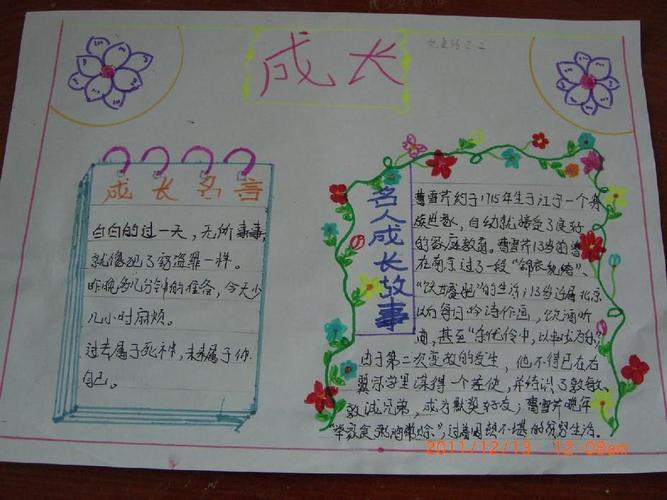 成长
成长名言
白白的过一天，无所事事，
就像犯了窃盗罪一样。
昨晚多几分钟的准备，今天少
几小时麻烦。
过去属于死神，未来属于你
自己。
名人成长故事
曹雪芹约于1715年生于江宁一个
世家，自幼就接受了良好
的家庭教育。曹雪芹13岁前曾
在南京过了一段"锦衣纨绔"、
的生活；13岁迁居北京
以后每日吟诗作画，饮酒听
曲，甚至"杂优伶中，
由于第二次变故的发生，他不得已在右
翼宗学里谋得一个差使，并结识了敦敏、
敦诚兄弟，成为默契好友；曹雪芹晚年
"举家食粥酒常赊"，过着困顿不堪的贫穷生活。
2011/12/13 12:08am